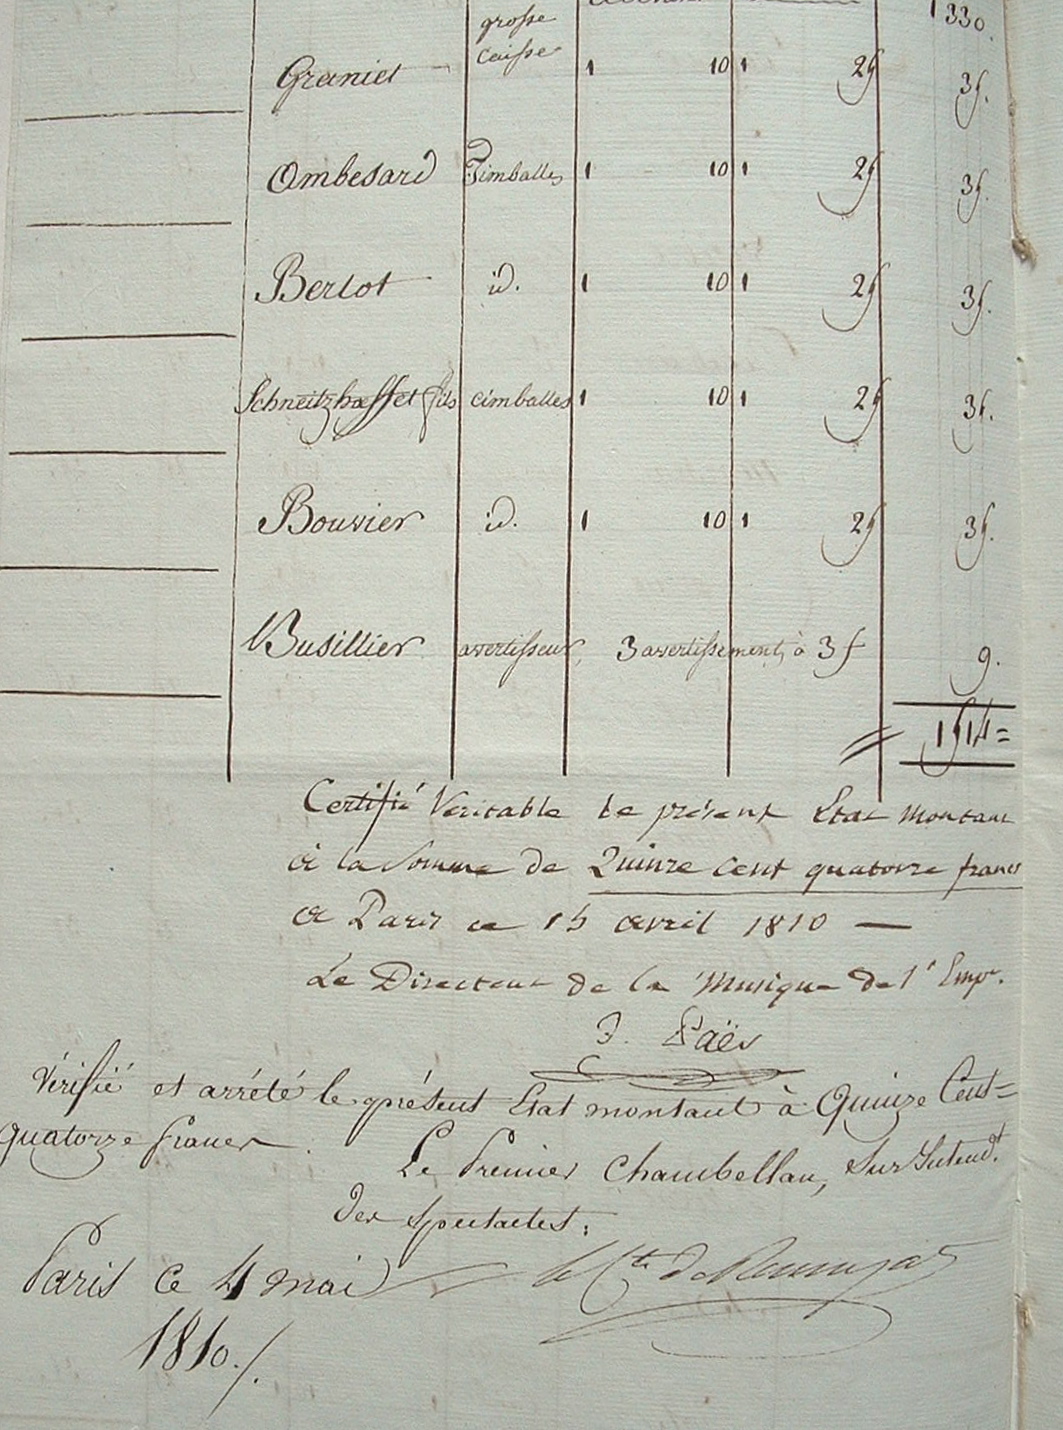 1330.
grosse
caisse
Graniet 1 10 1 25 35.
Ombesard Timballes 1 10 1 25 35.
Bertot id. 1 10 1 25 35.
Schneitzhoeffet fils cimballes 1 10 1 25 35.
Bouvier id. 1 10 1 25 35.
Busillier avertisseur, 3 avertissements à 3f 9.
1514=
Certifié Veritable le présent Etat montant
à la Somme de Quinze cent quatorze francs
à Paris ce 15 avril 1810 —
Le Directeur de la Musique de l'Empr.
F. Paër
Vérifié et arrêté le présent Etat montant à Quinze Cent=
quatorze francs
Le Premier Chambellan, Sur Intendt.
des spectacles:
Paris ce 4 mai
le Cte de Remusat
1810./.